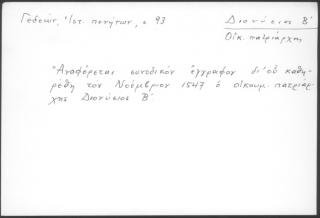 Γεδεών, Ἱστ. πενήτων, σ. 93
Διονύσιος Β΄
Οἰκ. πατριάρχης
"Ἀναφέρεται συνοδικόν ἔγγραφον δι' οὗ καθη-
ρέθη τον Νοέμβριον 1547 ὁ οἰκουμ. πατριάρ-
χης Διονύσιος Β΄